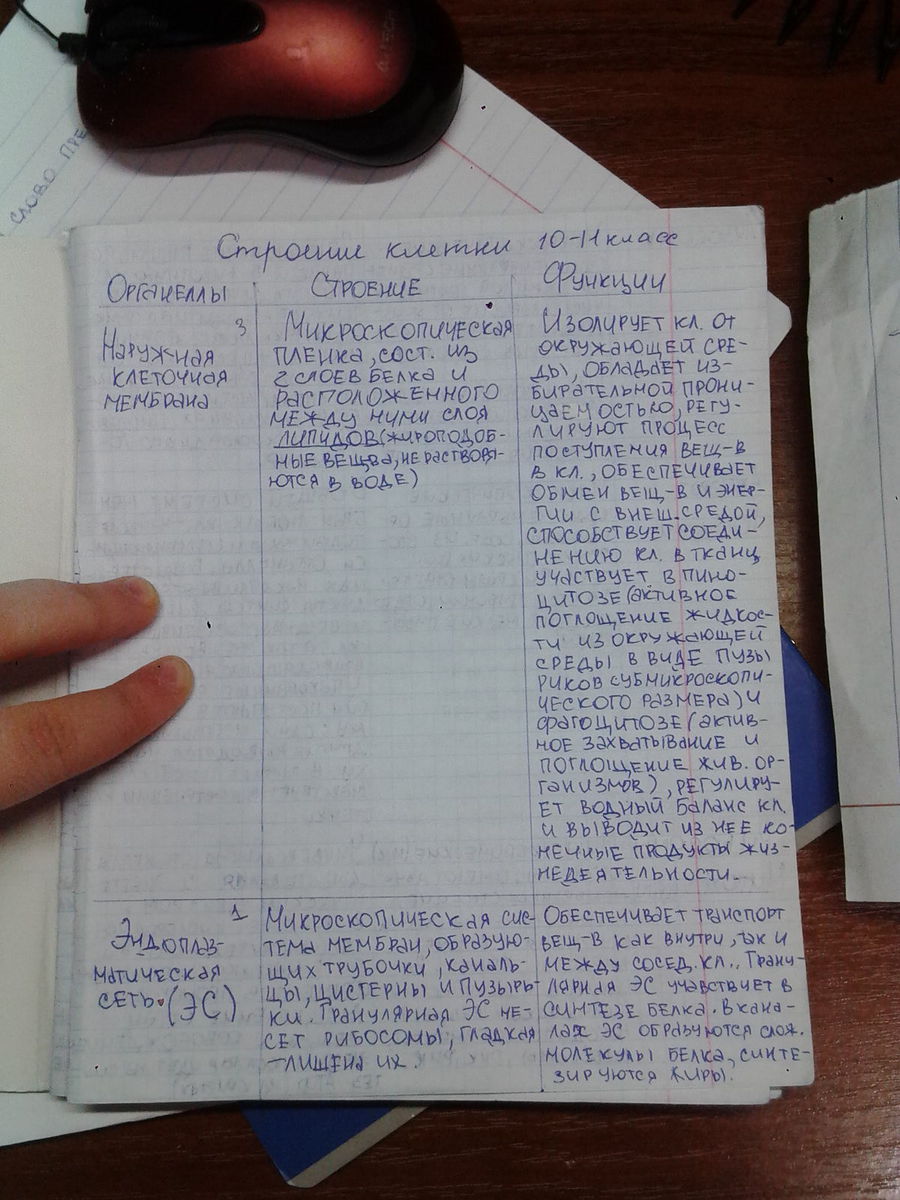 СЛОВО ПРЕ
Строение клетки 10-11 класс
Органеллы
Строение
Функции
Наружная 3
клеточная
мембрана
Микроскопическая
пленка, сост. из
2 слоев белка и
расположенного
между ними слоя
липидов (жироподоб-
ные вещва, не раство­ря-
ются в воде)
Изолирует кл. от
окружающей сре-
ды, обладает из-
бирательной прони-
цаемостью, регу-
лируют процесс
поступления вещ-в
в кл., обеспечивает
обмен вещ-в и энер-
гии с внеш. средой,
способствует соеди-
нению кл. в ткани,
участвует в пино-
цитозе (активное
поглощение жидкос-
ти из окружающей
среды в виде пузы
риков субмикроскопи-
ческого размера) и
фагоцитозе (актив-
ное захватывание и
поглощение жив. ор-
ганизмов), регулиру-
ет водный баланс кл.
и выводит из нее ко-
нечные продукты жиз-
недеятельности.
Эндоплаз- 1
матическая
сеть. (ЭС)
Микроскопическая сис-
тема мембран, образую-
щих трубочки, каналь-
цы, цистерны и пузырь-
ки. Гранулярная ЭС не-
сет рибосомы, гладкая
– лишена их.
Обеспечивает транспорт
вещ-в как внутри, так и
между сосед. кл.. Грану-
лярная ЭС учавствует в
синтезе белка. В кана-
лах ЭС образуются слож.
молекулы белка, синте-
зируются жиры.